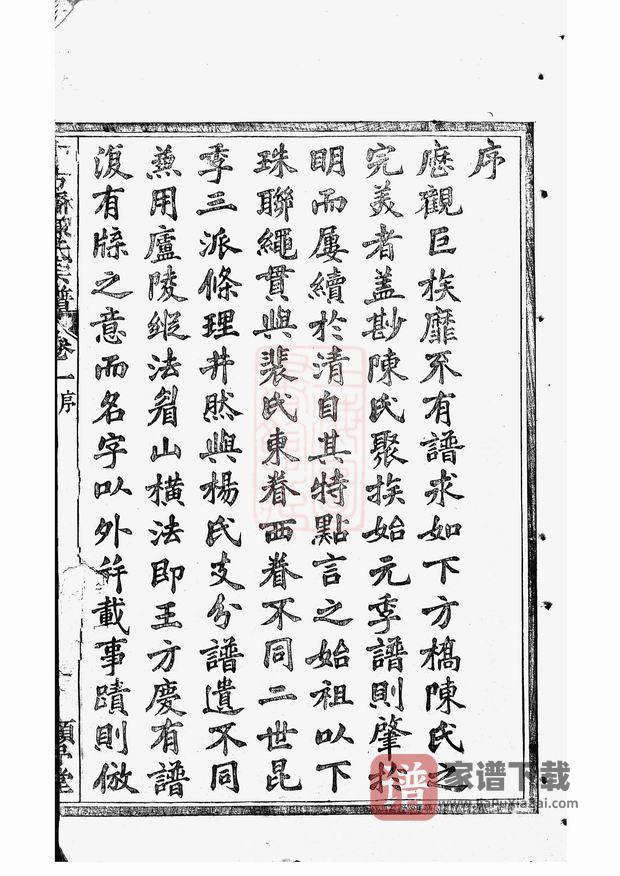 序
歷觀巨族靡不有譜求如下方橋陳氏之
完美者蓋尠陳氏聚族始元季譜則肇於
明而屢續於清自其特點言之始祖以下
珠聯繩貫與裴氏東眷西眷不同二世昆
季三派條理井然與楊氏支分譜遺不同
兼用廬陵縱法眉山橫法即王方慶有譜
復有牒之意而名字以外幷載事蹟則倣
方橋陳氏宗譜 卷一序
家谱下载
www.jiapuxiazai.com
谱